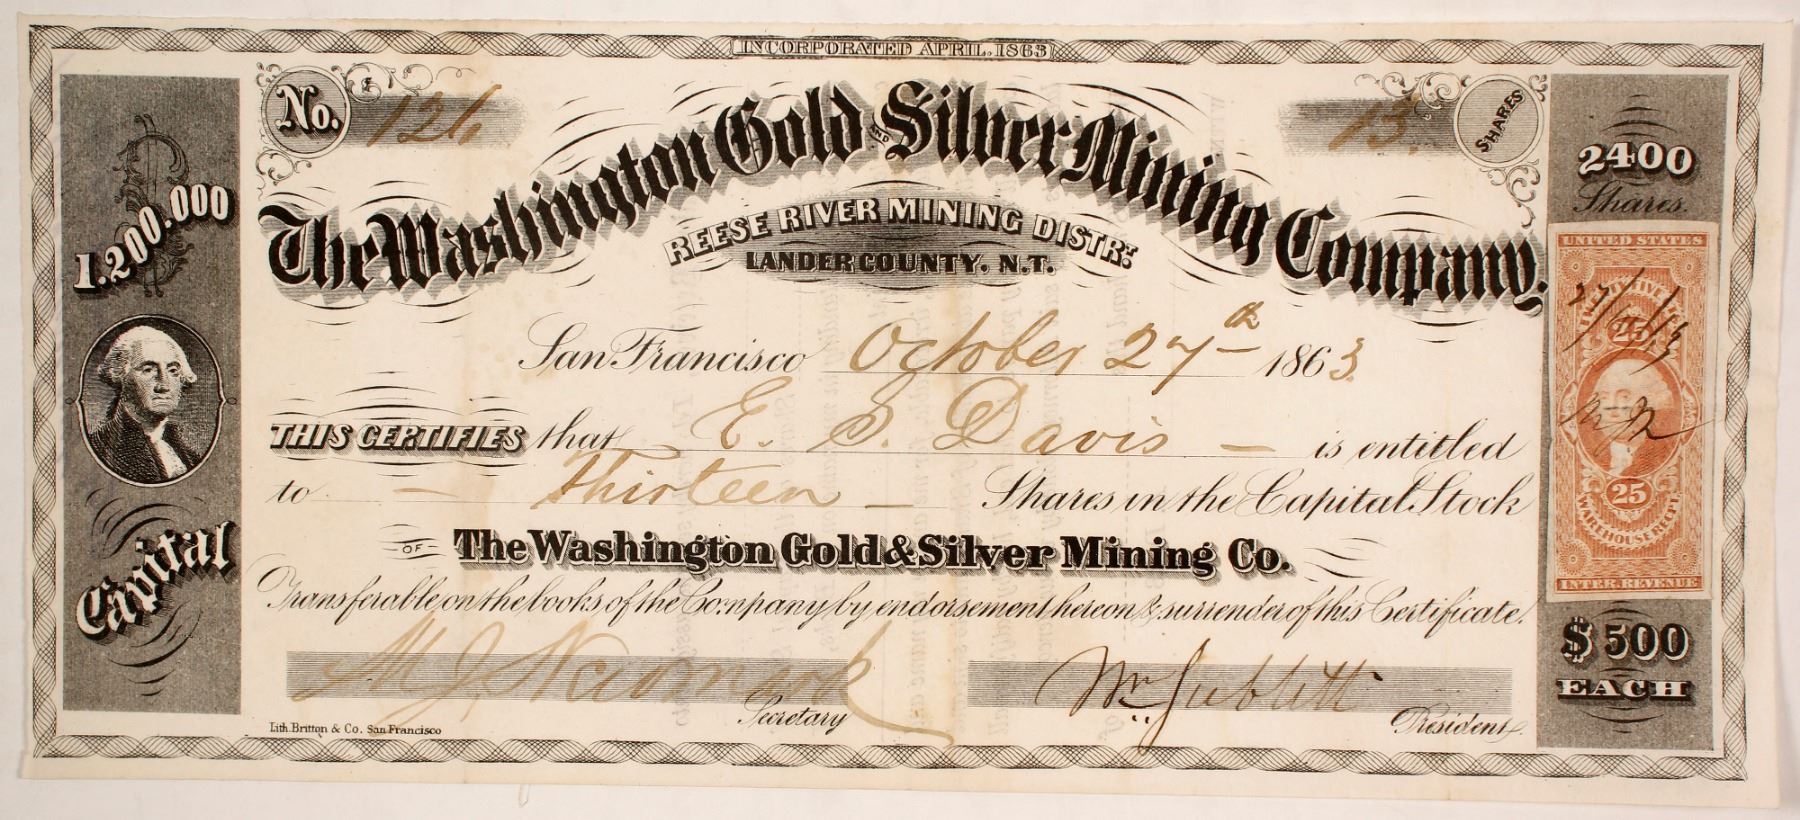 INCORPORATED APRIL. 1863
No. 126
13. SHARES
The Washington Gold AND Silver Mining Company.
REESE RIVER MINING DISTR:T
LANDER COUNTY. N.T.
$1.200.000
Capital
2400
Shares.
UNITED STATES
TWENTY FIVE
25
27/10/63
25
WAREHOUSE RECEIPT
INTER. REVENUE
$500
EACH
San Francisco October 27th 1863.
THIS CERTIFIES that E. S. Davis is entitled
to Thirteen Shares in the Capital Stock
OF The Washington Gold & Silver Mining Co.
Transferable on the books of the Company by endorsement hereon & surrender of this Certificate.
M J Newmark Secretary
Wm Sublett President
Lith. Britton & Co. San Francisco